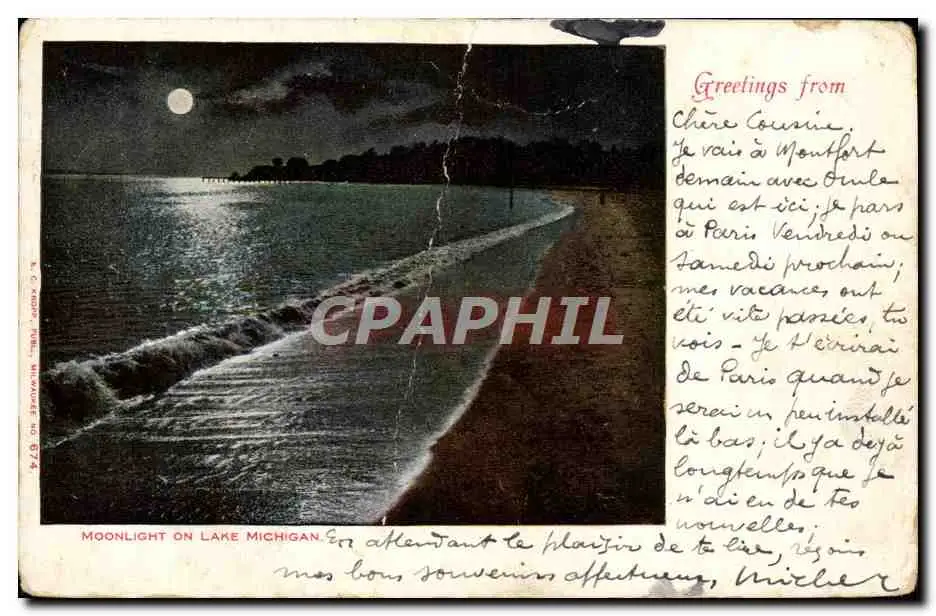 Greetings from
Chère Cousine.
Je vais à Montfort
demain avec Oncle
qui est ici; je pars
à Paris Vendredi ou
Samedi prochain;
mes vacances ont
été vite passées, tu
vois - Je t'écrirai
de Paris quand je
serai un peu installé
là bas; il y a déjà
longtemps que je
n'ai eu de tes
nouvelles;
En attendant le plaisir de te lire, reçois
mes bons souvenirs affectueux,
CPAPHIL
E. C. KROPP, PUBL., MILWAUKEE NO. 674.
MOONLIGHT ON LAKE MICHIGAN.